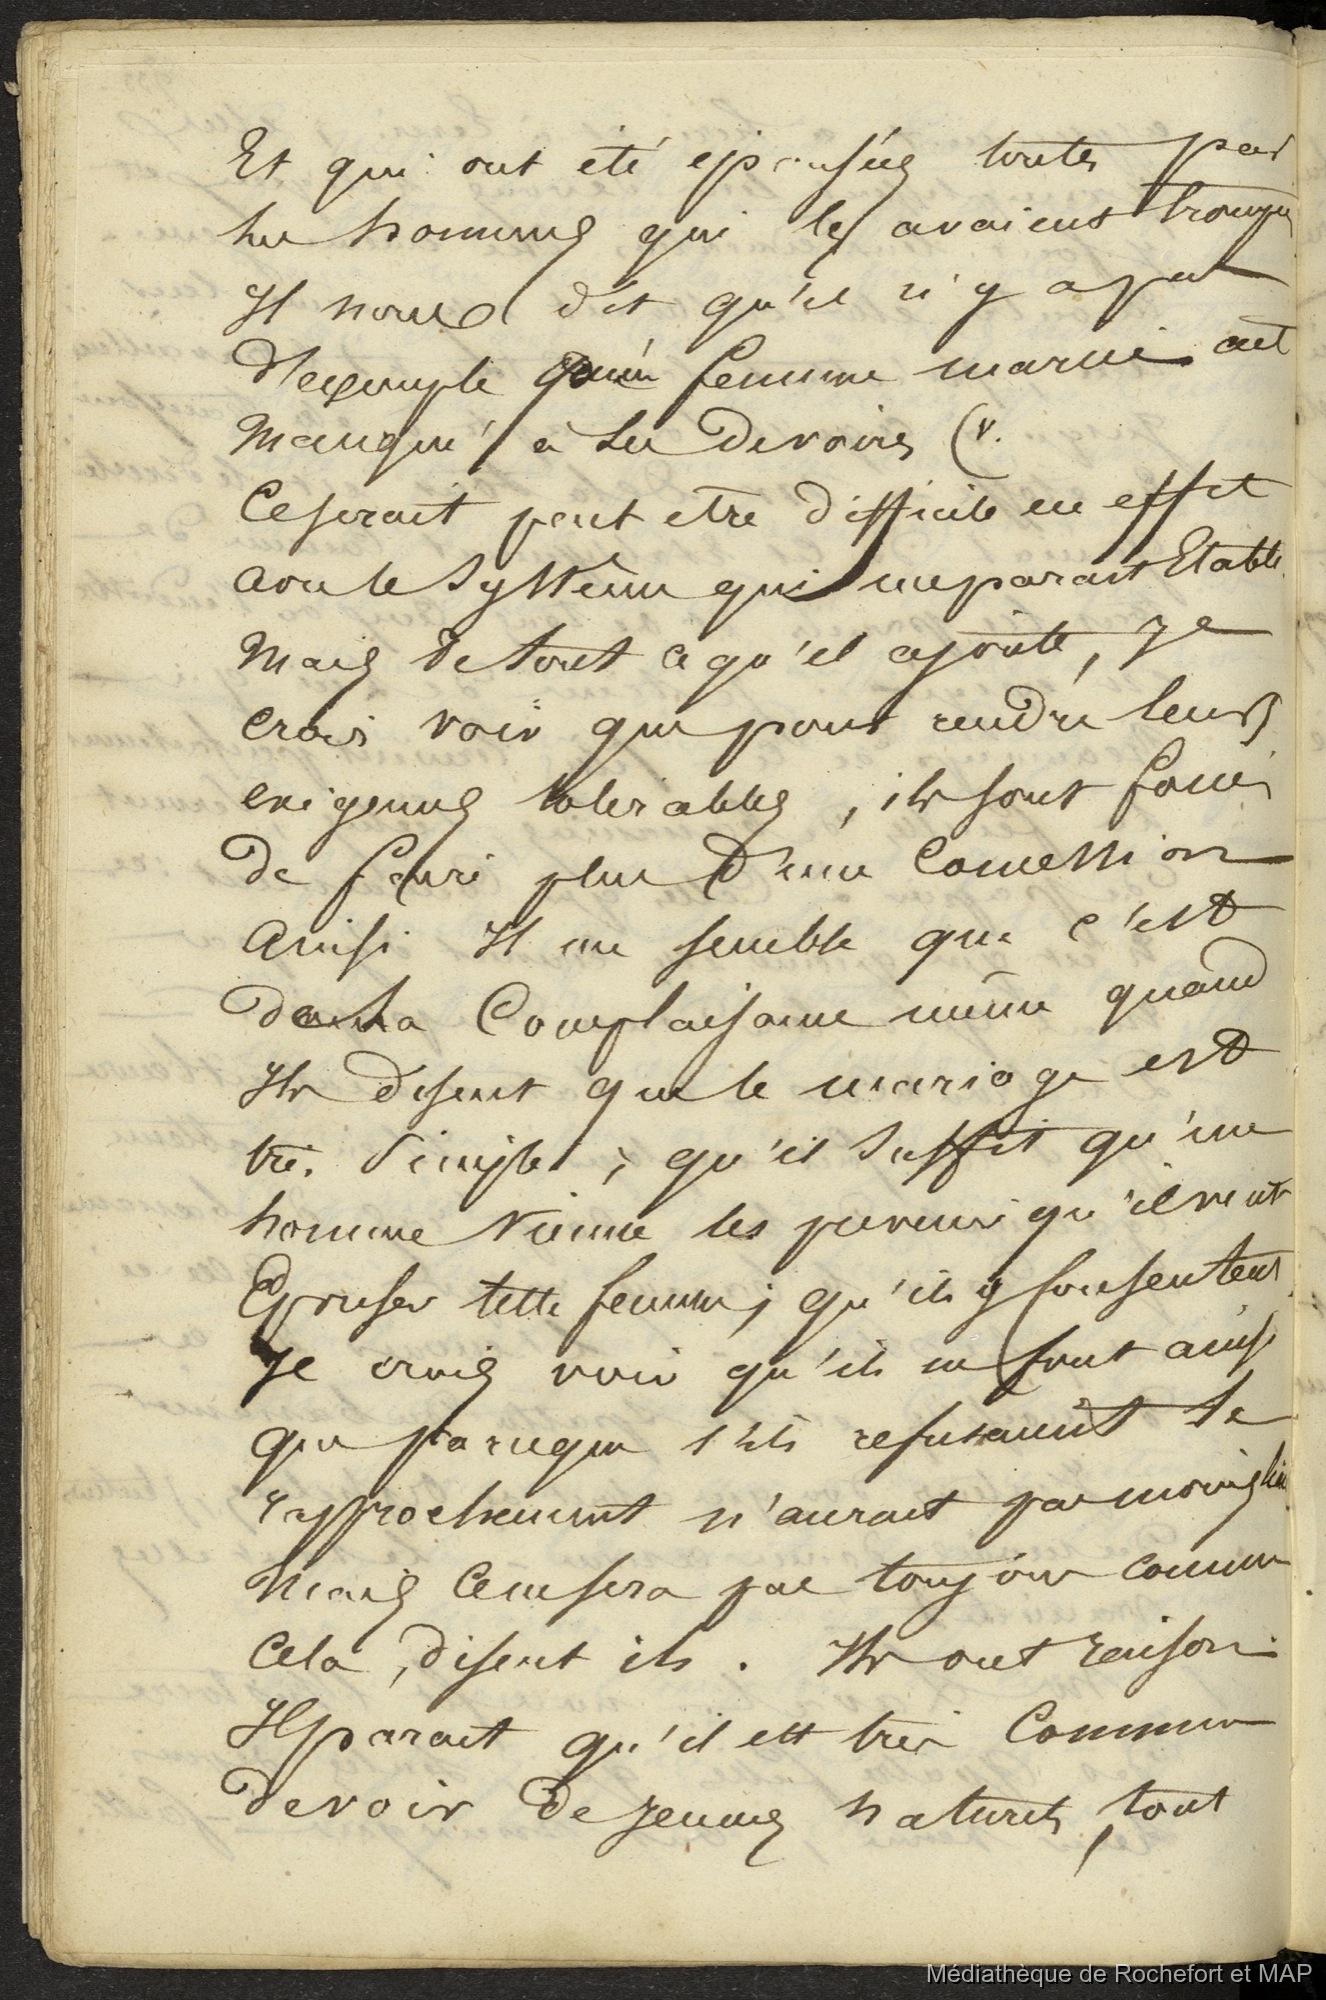 Et qui ont été épousées toutes par
les hommes qui les avaient trompées
Il nous dit qu'il n'y a pas
d'exemple qu'un femme marié ait
manqué à ses devoirs (v.
Ce serait peut etre difficile en effet
avec le système qui me parait Etabli
Mais de tout ce qu'il ajoute, je
crois voir que pour rendre leurs
exigences tolerables, ils sont forcés
de faire plus d'une Concession
Ainsi Il me semble que c'est
de la Complaisance même quand
Ils disent que le mariage est
très simple ; qu'il suffit qu'un
homme vienne les prevenir qu'il veut
Epouser telle femme ; qu'ils y consentent
Je crois voir qu'ils ne font ainsi
que parceque s'ils refusaient le
rapprochement n'aurait pas moins lieu
Mais ce ne sera pas toujours comme
cela, disent ils. Ils ont raison.
Il parait qu'il est très Commun
de voir de jeunes naturels, tout
Médiathèque de Rochefort et MAP